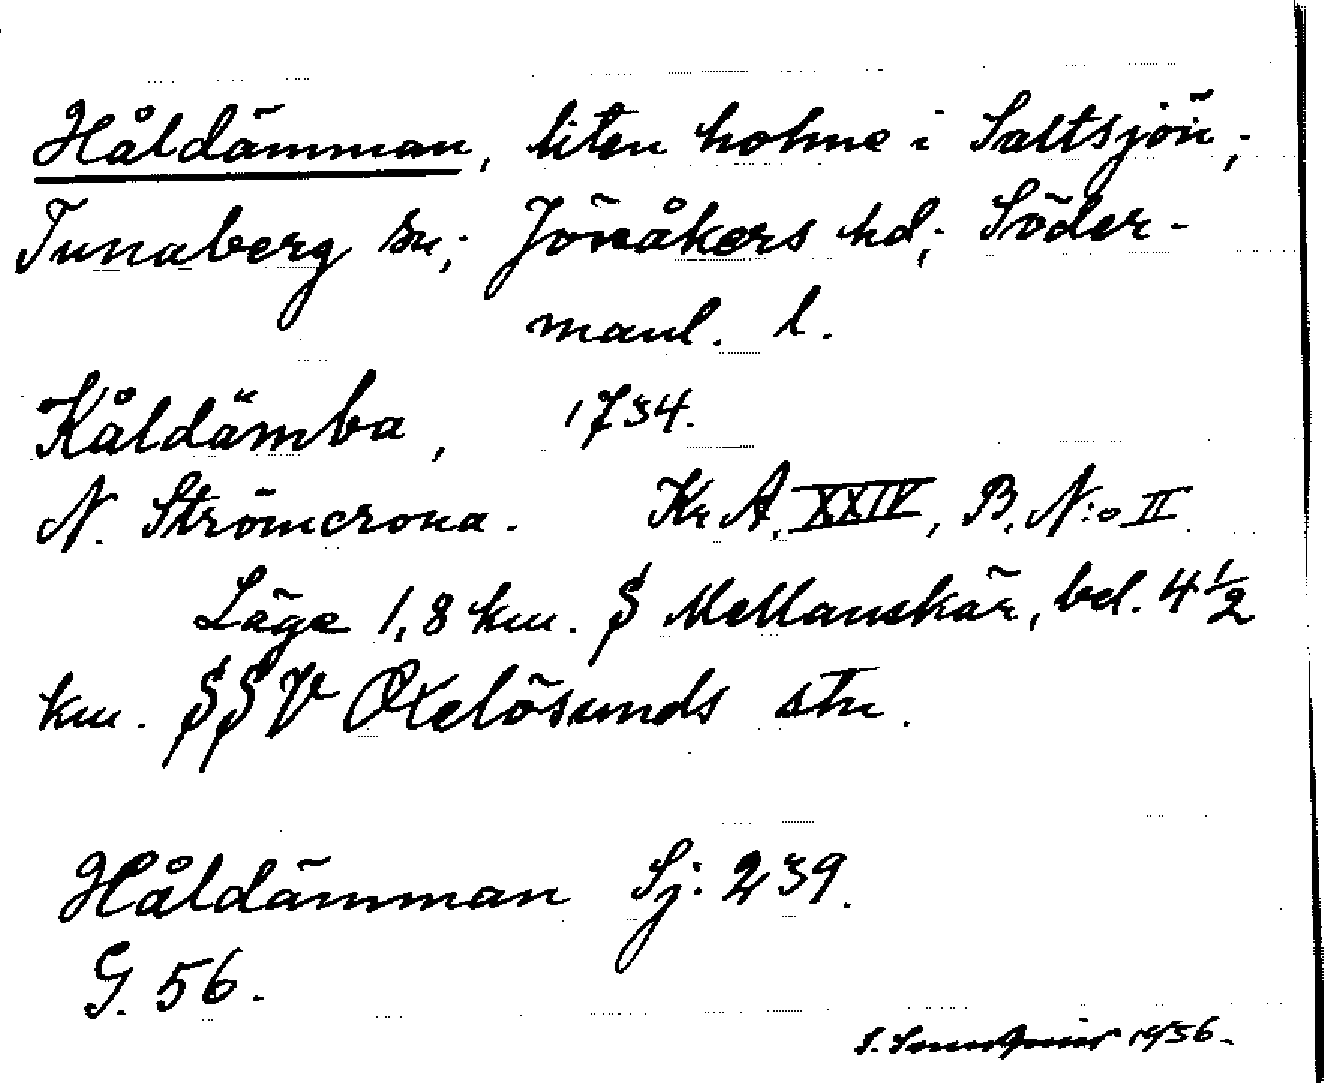 Håldämman, liten holme i Saltsjön,;
Tunaberg sn,; Jönåkers hd,; Söder-
manl. l.
Kåldämba, 1734.
N. Strömcrona. Kr. A, XXIV, B. N:o II.
Läge 1,8 km. S Mellanskär, bel. 4 1/2
km. SSV Oxelösunds stn.
Håldämman Sj: 239.
G. 56.
1956.